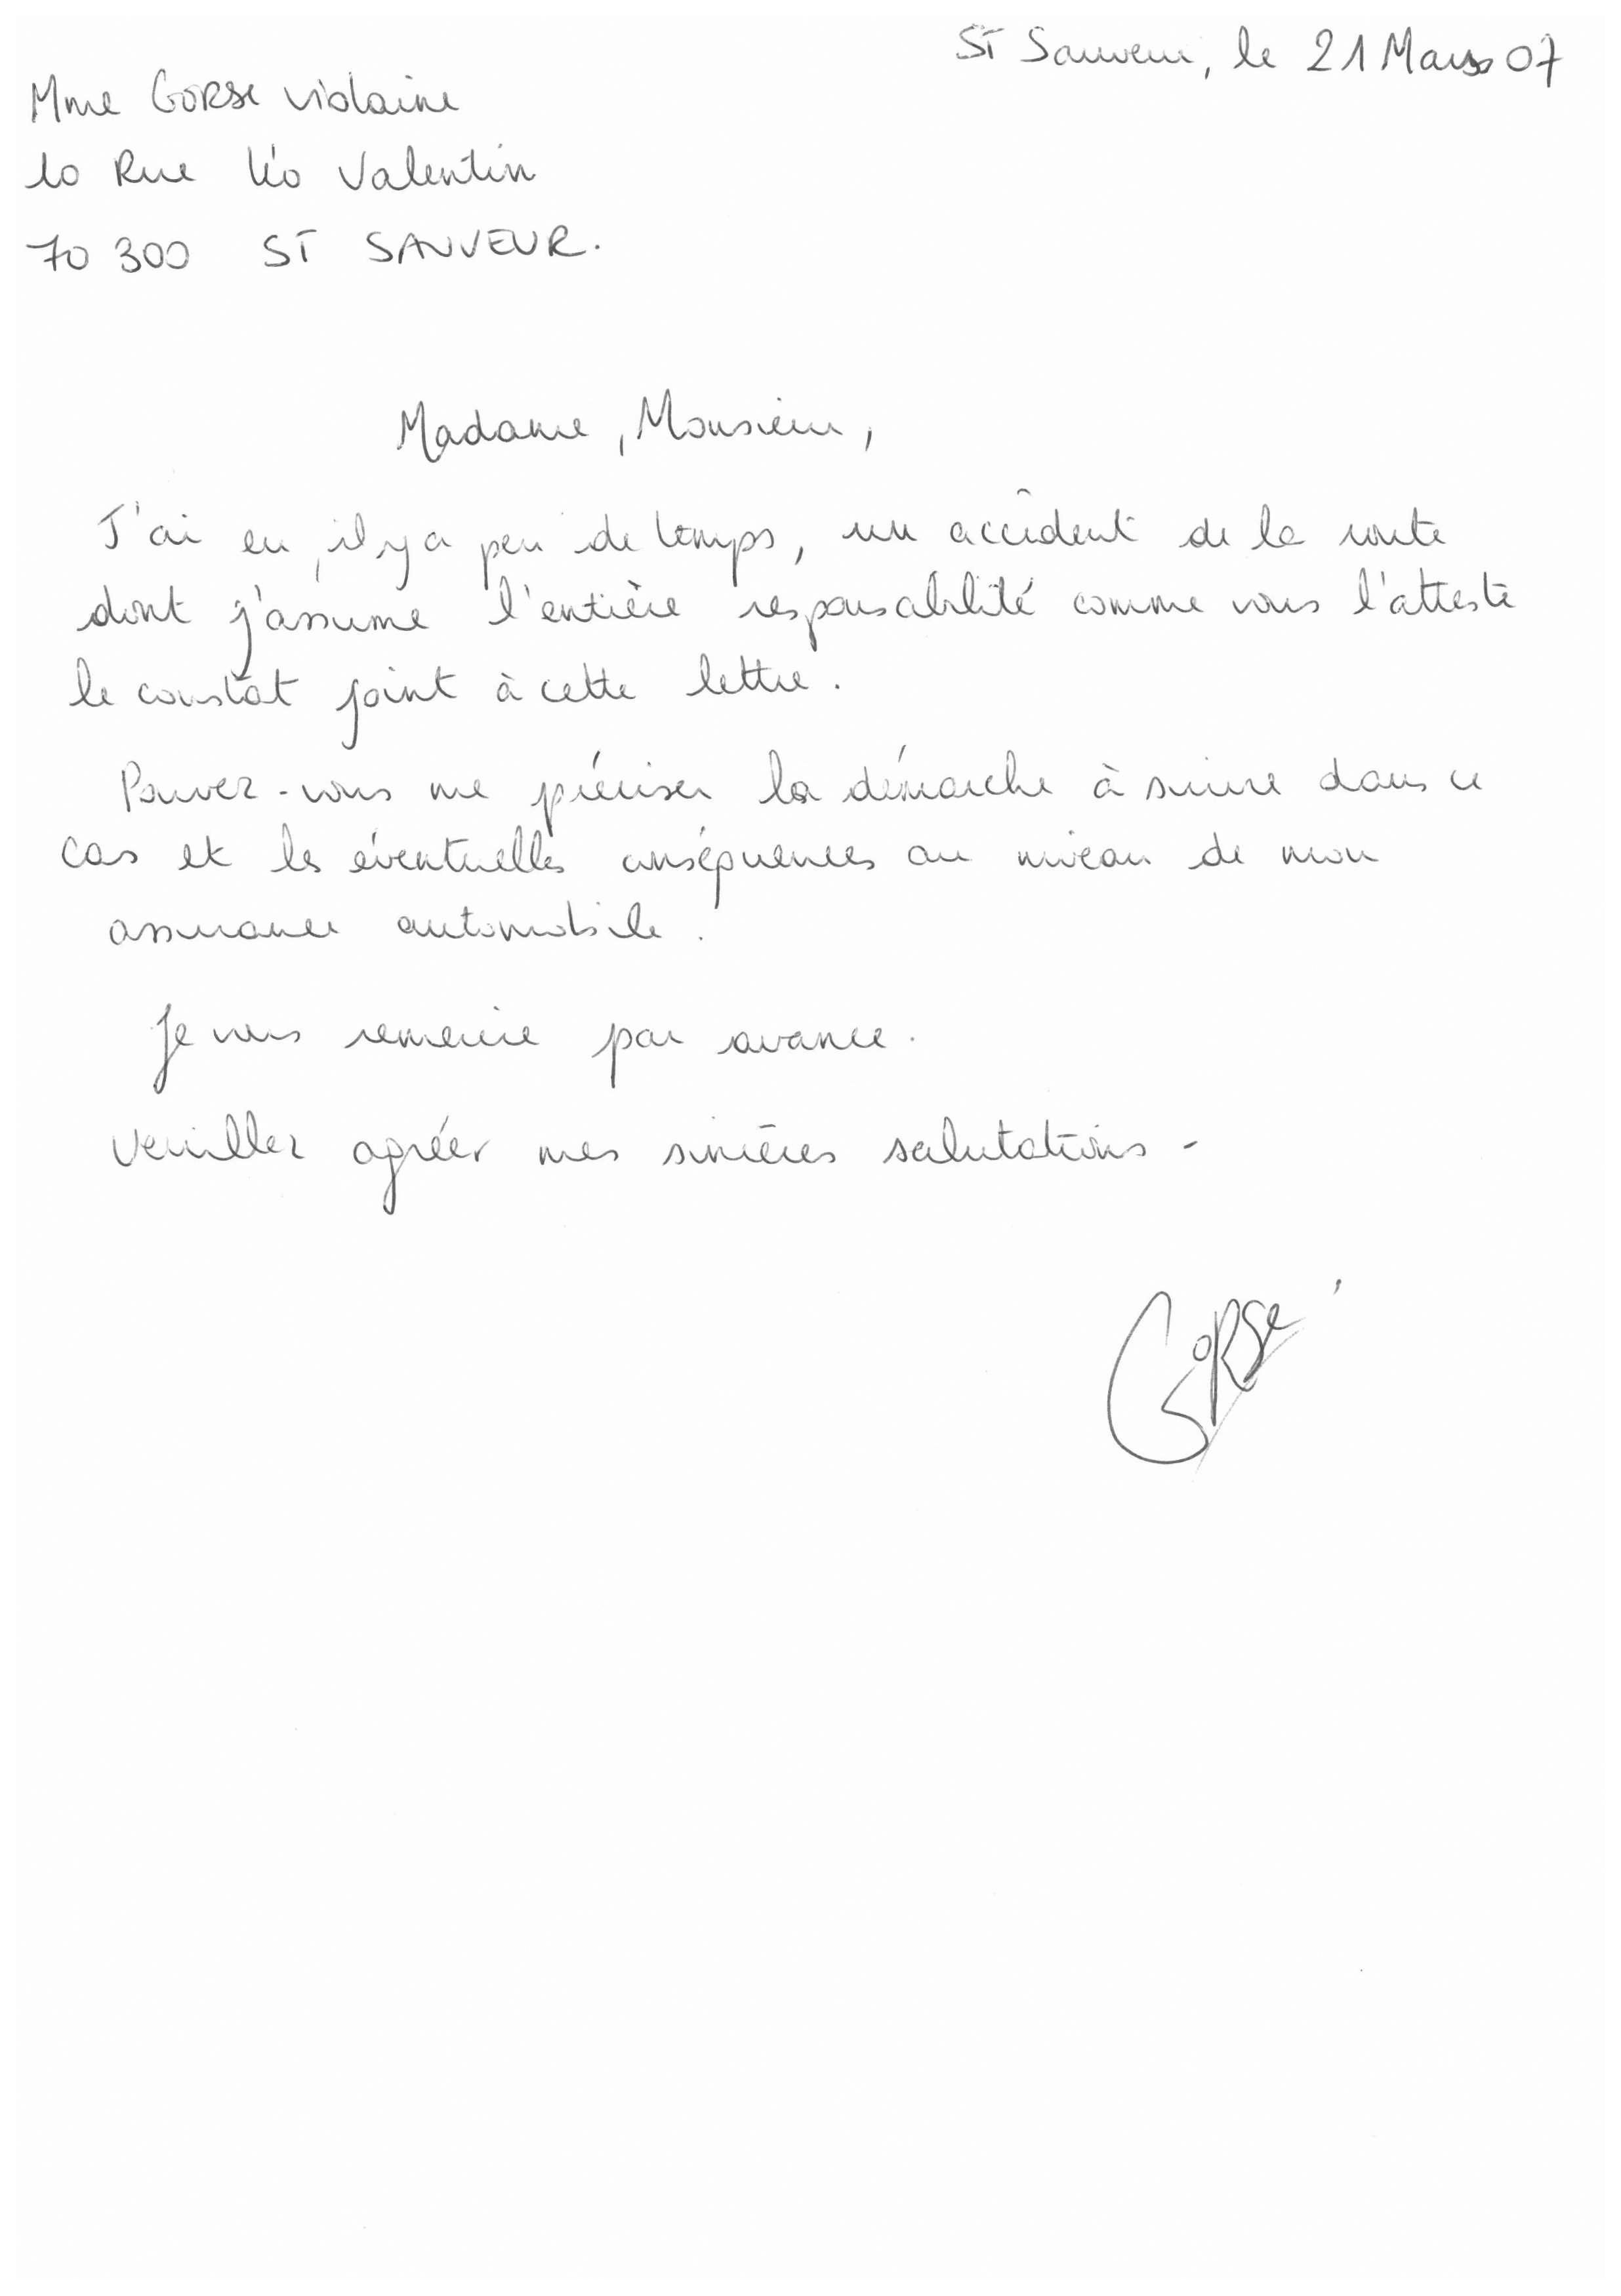 St Sauveur, le 21 Mars 07
Mme GORSE Violaine
10 Rue Léo Valentin
70 300 ST SAUVEUR.
Madame, Monsieur,
J'ai eu, il y a peu de temps, un accident de la route
dont j'assume l'entière responsabilité comme vous l'atteste
le constat joint à cette lettre.
Pouvez-vous me préciser la démarche à suivre dans ce
cas et les éventuelles conséquences au niveau de mon
assurance automobile.
Je vous remercie par avance.
Veuillez agréer mes sincères salutations -
Gorse